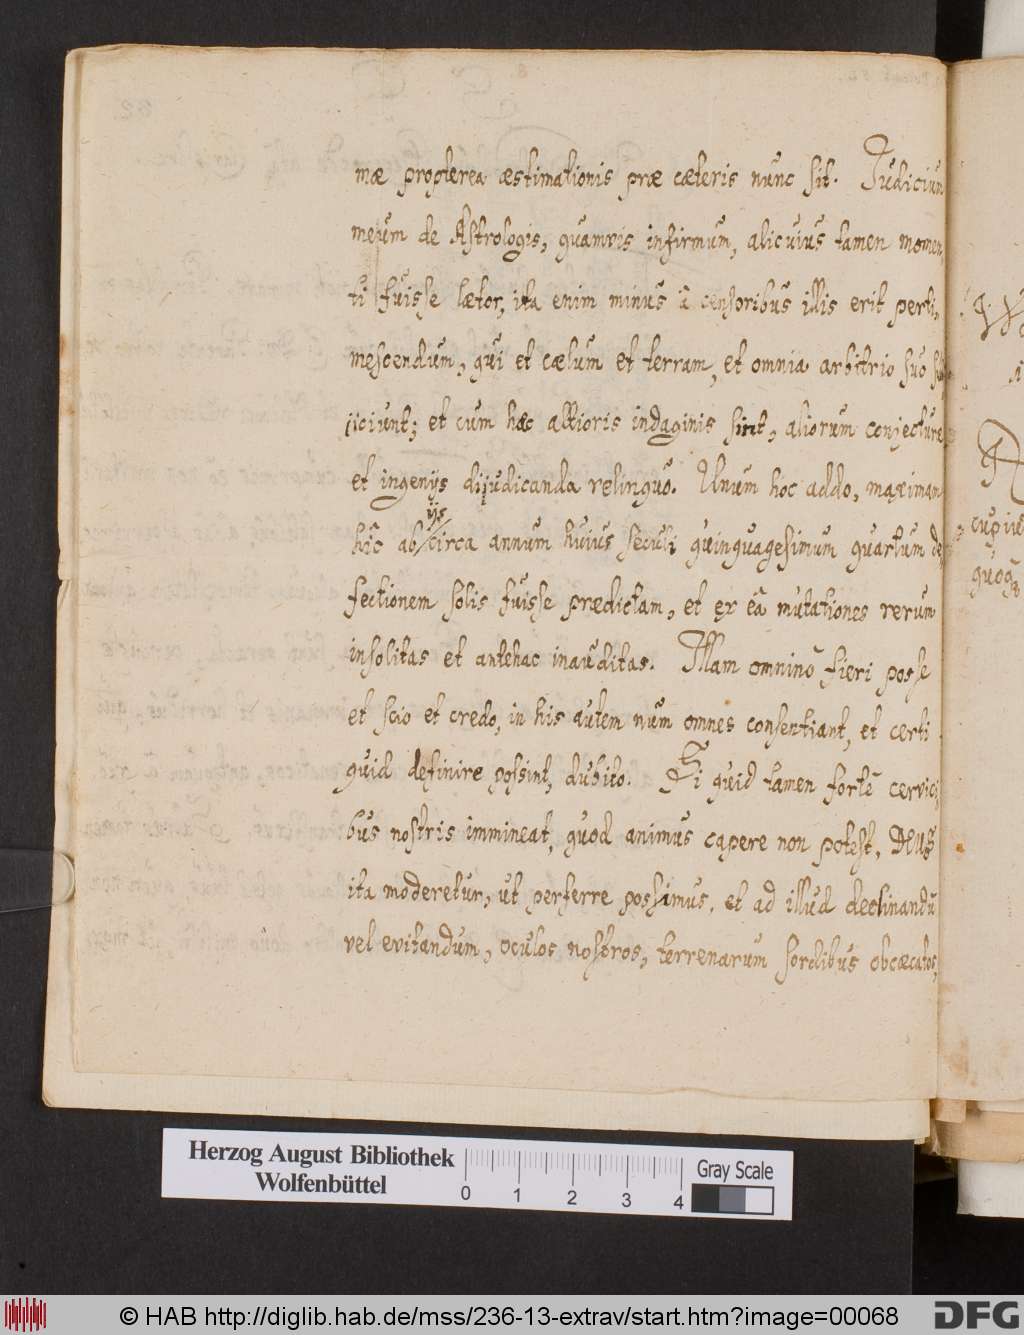 mæ propterea æstimationis præ cæteris nunc sit. Judicium
meum de Astrologis, quamvis infirmum, alicuius tamen momen
ti fuisse lætor, ita enim minus à censoribus illis erit perti,
mescendum, qui et cælum et terram, et omnia arbitrio suo sub
ijciunt; et cum hæc altioris indaginis sint, aliorum conjecturæ
et ingenijs dijudicanda relinquo. Unum hoc addo, maximam
hîc ab ijs circa annum huius seculi quinquagesimum quartum de,
fectionem solis fuisse prædictam, et ex eâ mutationes rerum
insolitas et antehac inauditas. Illam omninò fieri posse
et scio et credo, in his autem num omnes consentiant, et certi
quid definire possint, dubito. Si quid tamen fortè cervici,
bus nostris immineat, quod animus capere non potest, DEUS
ita moderetur, ut perferre possimus, et ad illud declinandū
vel evitandum, oculos nostros, terrenarum sordibus obcæcatos,
cupiu
quoq
Herzog August Bibliothek
Wolfenbüttel
0 1 2 3 4
Gray Scale
© HAB http://diglib.hab.de/mss/236-13-extrav/start.htm?image=00068
DFG